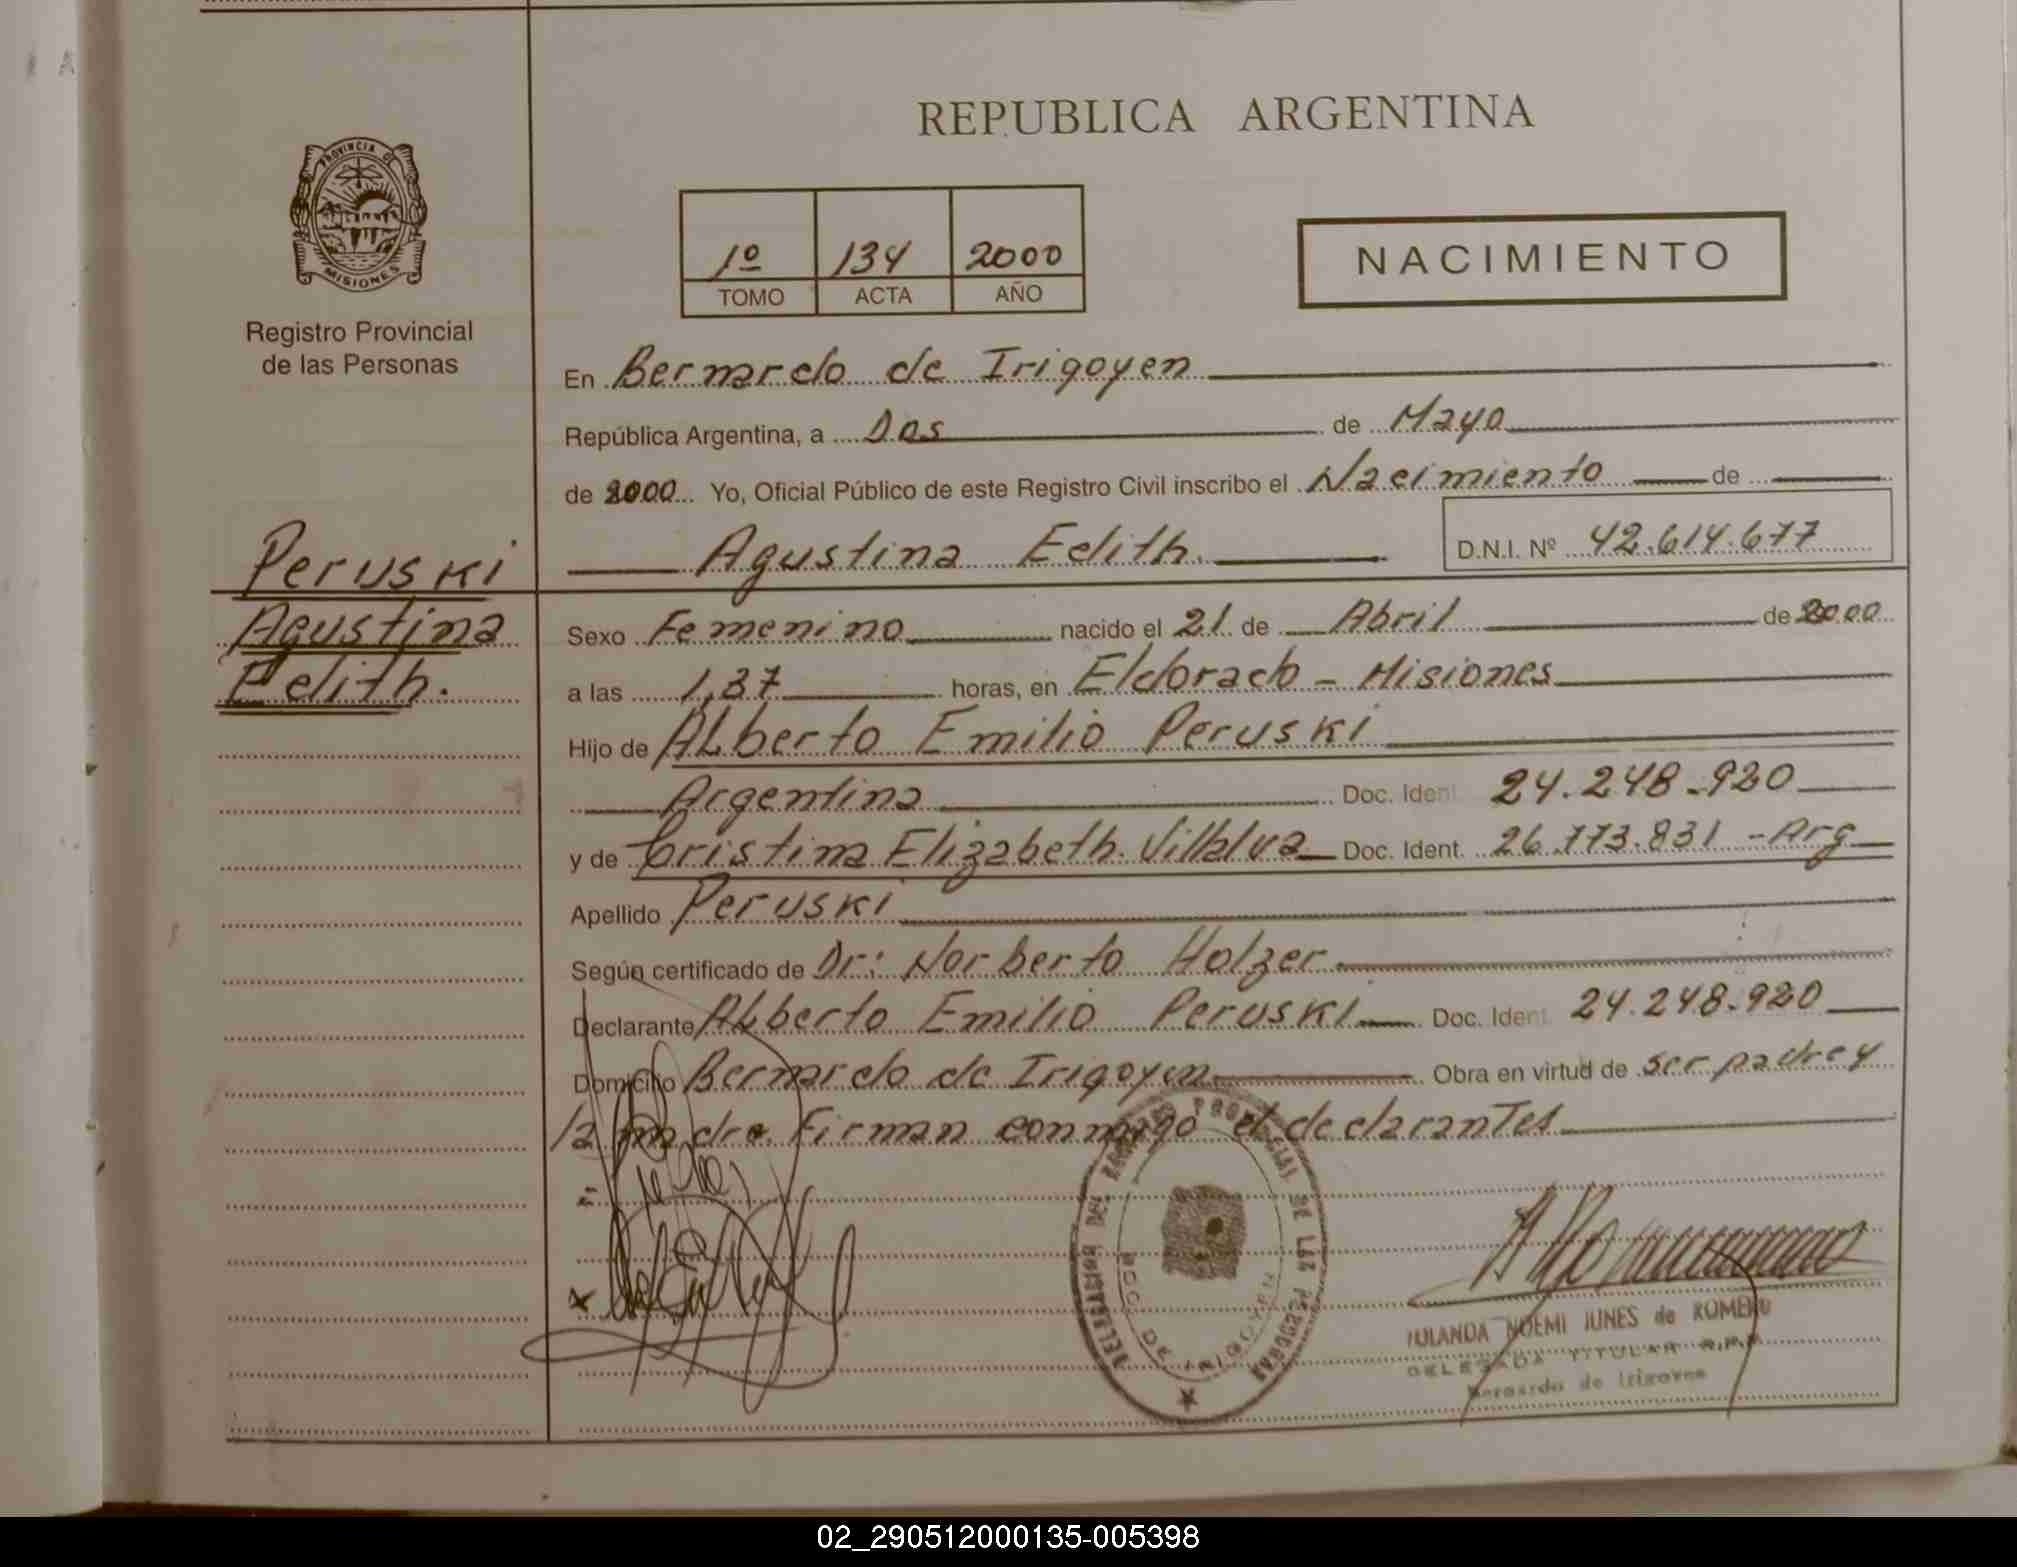 REPUBLICA ARGENTINA
PROVINCIA DE
MISIONES
Registro Provincial
de las Personas
1º 134 2000
TOMO ACTA AÑO
NACIMIENTO
En Bernardo de Irigoyen
República Argentina, a Dos de Mayo
de 2000 Yo, Oficial Público de este Registro Civil inscribo el Nacimiento de
Agustina Edith. D.N.I. Nº 42.614.677
Peruski
Agustina
Edith.
Sexo Femenino nacido el 21 de Abril de 2000
a las 1,37 horas, en Eldorado - Misiones
Hijo de Alberto Emilio Peruski
Argentina Doc. Ident. 24.248.920
y de Cristina Elizabeth. Villalva Doc. Ident. 26.773.831 - Arg
Apellido Peruski
Según certificado de Dr: Norberto Holzer
Declarante Alberto Emilio Peruski Doc. Ident. 24.248.920
Domicilio Bernardo de Irigoyen Obra en virtud de ser padre y
la madre. Firman conmigo el declarantes
DELEGACION DEL REGISTRO PROVINCIAL DE LAS PERSONAS
BDO. DE IRIGOYEN
IULANDA NOEMI JUNES de ROMERO
DELEGADA TITULAR R.P.P.
Bernardo de Irigoyen
02_290512000135-005398